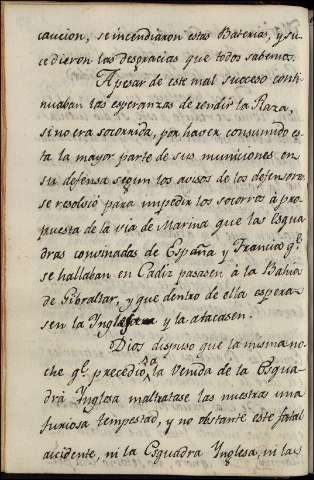 caucion, se incendiaron estas Baterias, y su-
cedieron las desgracias que todos sabemos.
Apesar de este mal suceso conti-
nuaban las esperanzas de rendir la Plaza,
si no era socorrida, por haver consumido es-
ta la mayor parte de sus municiones en
su defensa segun los avisos de los defensores
se resolvió para impedir los socorros á pro-
puesta de la via de Marina que las Esqua-
dras convinadas de España y Francia qe.
se hallaban en Cadiz pasasen á la Bahia
de Gibraltar, y que dentro de ella espera-
sen la Inglesa y la atacasen.
Dios dispuso que la misma no-
che qe. precedió a la Venida de la Esqua-
dra Inglesa maltratase las nuestras una
furiosa tempestad, y no obstante este fatal
accidente, ni la Esquadra Inglesa, ni las